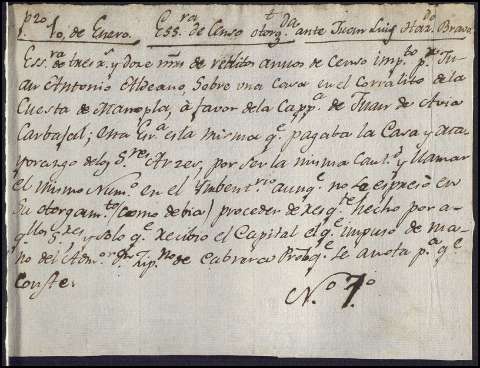 p.20
10, de Enero. Ess.ra de Censo otorg.da ante Juan Luis Hern.do Bravo
Ess.ra de tres r.s y doze mrs de redito annos de censo imp.to p.r Ju-
an Antonio Aldeano, Sobre una Casa en el Corralito de la
Cuesta de Manopla, à favor de la Capp.a de Juan de Avia
Carbajal; esta misma q.e pagaba la Casa y ma-
yorazgo de los S.res Arzes, por ser la misma Cant.d y llamar
el mismo Num.o en el Ymbent.rio aunq.e no se expresò en
su otorgam.to (como debia) proceder de hecho por a-
q.llos S.res, y solo q.e recibio el Capital el q.e impuso de ma-
no del Adm.or de Cabrera Prob. q.e Se anota p.a q.e
Conste.
N.o 7.o